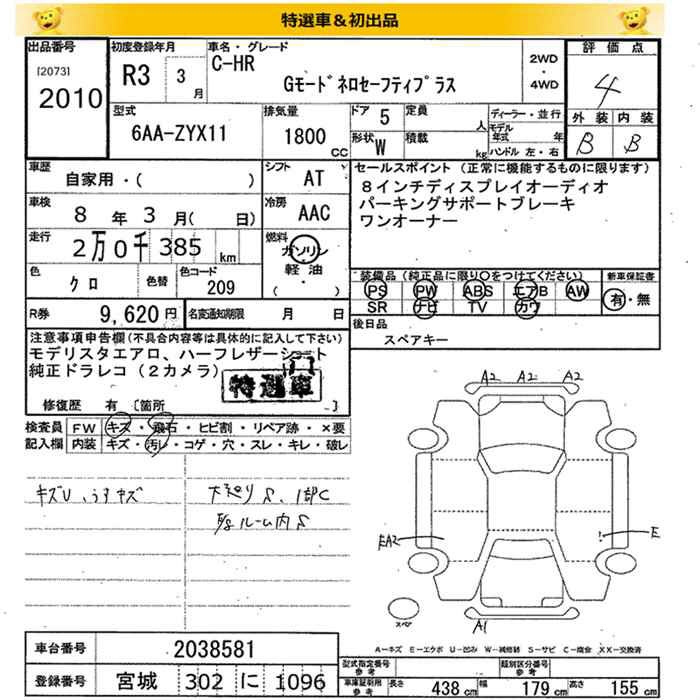 特選車＆初出品
出品番号 初度登録年月 車名・グレード 評価点
[2073] R3 3月 C-HR 2WD・4WD 4
2010 Gモードネロセーフティプラス 外装 内装
型式 排気量 ドア 5 定員 人 ディーラー・並行 B B
6AA-ZYX11 1800CC 形状 W 積載 kg モデル年式 年
ハンドル 左・右
車歴 シフト セールスポイント（正常に機能するものに限ります）
自家用・( ) AT 8インチディスプレイオーディオ
車検 冷房 パーキングサポートブレーキ
8年3月( 日) AAC ワンオーナー
走行 燃料
2万0千385km ガソリン
色 色替 色コード 軽油・ 装備品（純正品に限り○をつけてください） 新車保証書
クロ 209 ( ) PS PW ABS エアB AW 有・無
SR ナビ TV カワ
R券 9,620円 名変通知期限 月 日 後日品
スペアキー
注意事項申告欄（不具合内容等は具体的に記入して下さい）
モデリスタエアロ、ハーフレザーシート
純正ドラレコ（2カメラ） 特選車
修復歴 有 [箇所 ]
検査員 FW キズ・飛石・ヒビ割・リペア跡・×要
記入欄 内装 キズ・汚レ・コゲ・穴・スレ・キレ・破レ
A2 A2 A2
キズU、うすキズ 下廻りS、1部C
ルーム内S
EA2 E
スペア
A1
A－キズ E－エクボ U－凹み W－補修跡 S－サビ C－腐食 XX－交換済
車台番号 2038581
型式指定番号 参考 類別区分番号 参考
登録番号 宮城 302 に 1096
車庫証明用 参考 長さ 438cm 幅 179cm 高さ 155cm